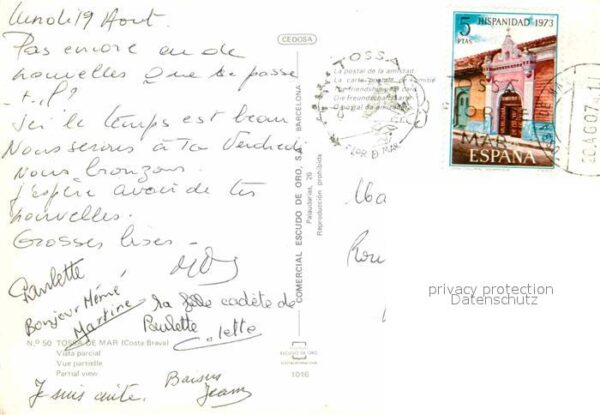 Lundi 19 Aout.
Pas encore eu de
nouvelles que se passe
-t-il?
Ici le temps est beau
Nous serons à Vendredi
Nous bronzons.
J'espère avoir de tes
nouvelles.
Grosses bises -
Paulette
Bonjour Mémé
Martine
la fille cadette de
Paulette
Colette
Nº 50 TOSSA DE MAR (Costa Brava)
Vista parcial
Vue partielle
Partial view
Je suis
Baisers
Jeany
ESCUDO DE ORO
1016
CEDOSA
COMERCIAL ESCUDO DE ORO, S.A. - BARCELONA
Palaudarias, 26
Reproducción prohibida
TOSSA
La postal de la amistad
La carte postale de l'amitié
The friendship post card
Die Freundschaftskarte
FLOR D MAR
5
PTAS
HISPANIDAD 1973
ESPAÑA
TOSSA
FLOR DE
MAR
20AGO7
Ma
Rou
privacy protection
Datenschutz